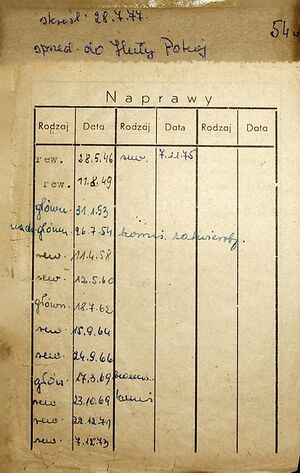 skreśl. 28.7.77.
sprzed. do Huty Pokój
54
Naprawy
Rodzaj Data Rodzaj Data Rodzaj Data
rew. 28.5.46 rew. 7.11.75
rew. 11.8.49
główn. 31.1.53
główn. 26.7.54
rew. 11.4.58
rew. 12.5.60
główn. 18.7.62
rew. 15.9.64
rew. 24.9.66
głów. 17.3.69
rew. 23.10.69
rew. 22.12.71
rew. 7.12.73